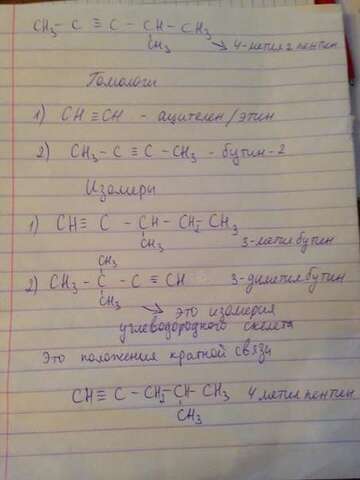 CH₃ - C ≡ C - CH - CH₃
CH₃ → 4-метил 2 пентин
Гомологи
1) CH ≡ CH - ацителен/этин
2) CH₃ - C ≡ C - CH₃ - бутин-2
Изомеры
1) CH ≡ C - CH - CH₂ - CH₃
CH₃
3-метил бутин
CH₃
2) CH₃ - C - C ≡ CH 3-диметил бутин
CH₃ → это изомерия
углеводородного скелета
Это положения кратной связи
CH ≡ C - CH₂ - CH - CH₃ 4 метил пентин
CH₃